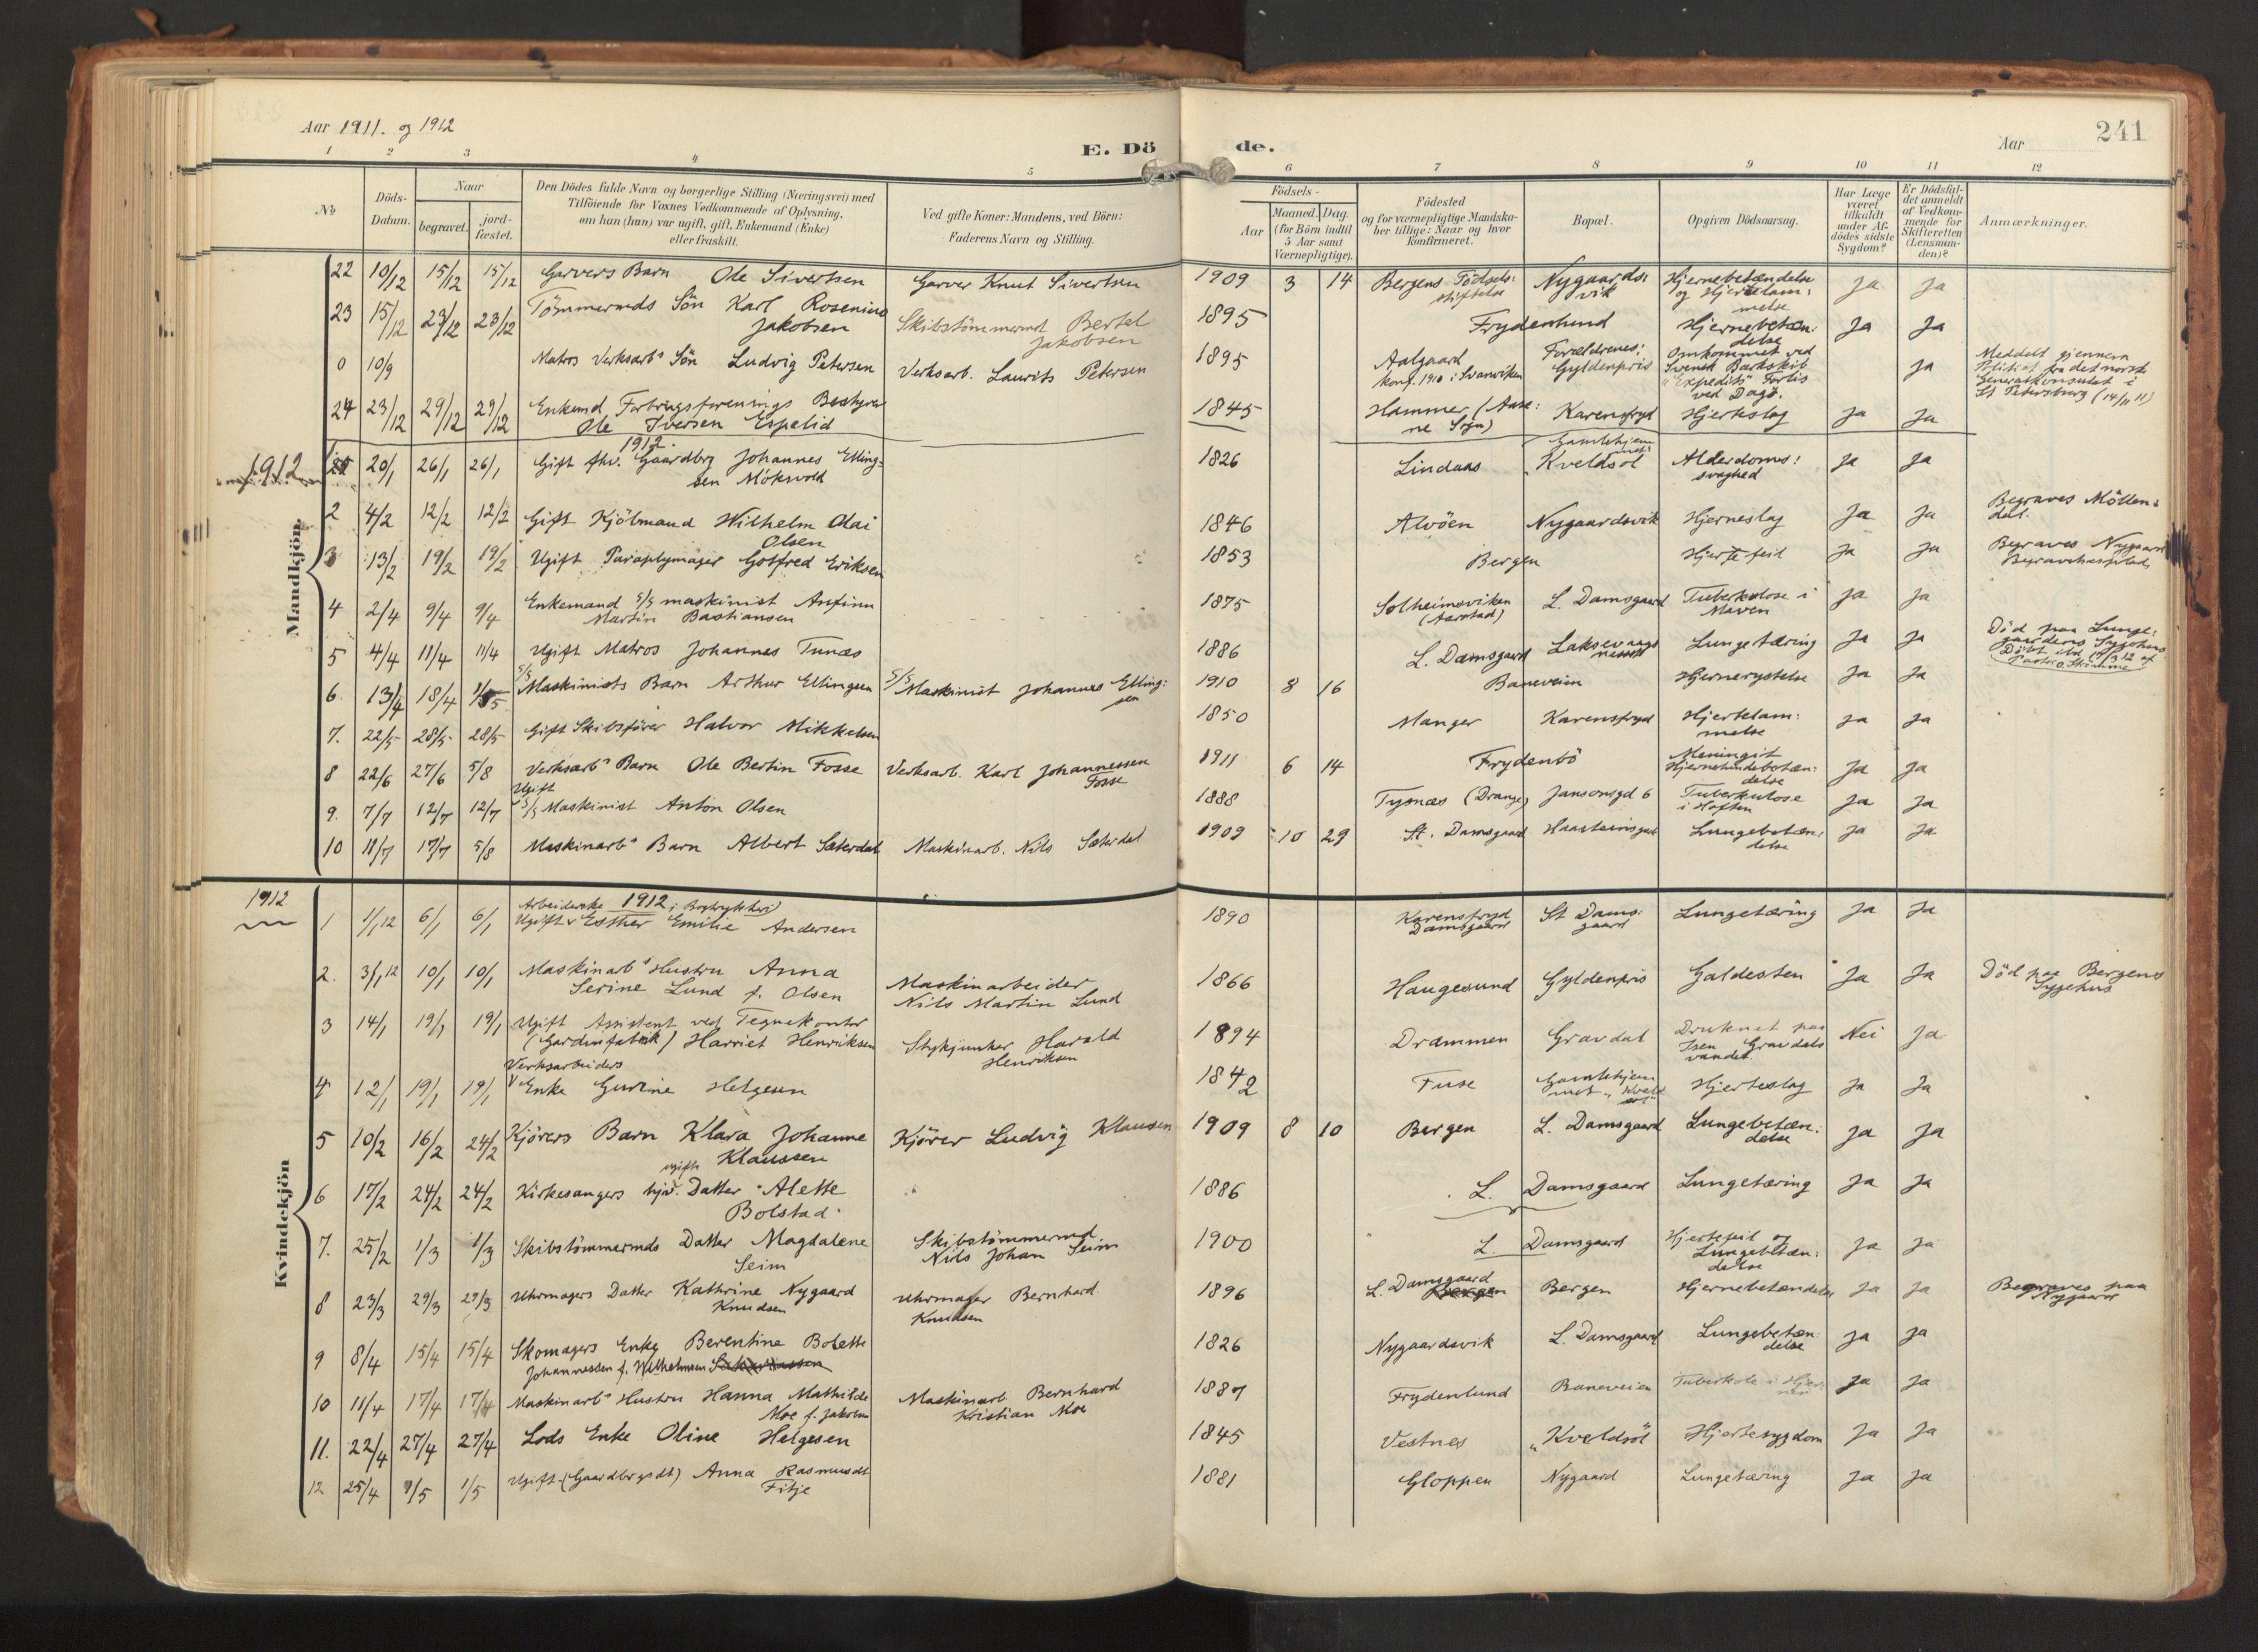 Aar 1911. og 1912
E. Dö de.
Aar
241
1 2 3 4 5 6 7 8 9 10 11 12
No
Döds-Datum.
Naar
begravet.
jord-fæstet.
Den Dödes fulde Navn og borgerlige Stilling (Næringsvei) med
Tilföiende for Voxnes Vedkommende af Oplysning,
om han (hun) var ugift, gift, Enkemand (Enke)
eller fraskilt.
Ved gifte Koner: Mandens, ved Börn:
Faderens Navn og Stilling.
Födsels-
Aar
Maaned. Dag.
(for Börn indtil
5 Aar samt
Værnepligtige).
Födested
og for værnepligtige Mandska-
ber tillige: Naar og hvor
konfirmeret.
Bopæl.
Opgiven Dödsaarsag.
Har Læge
været
tilkaldt
under Af-
dödes sidste
Sygdom?
Er Dödsfal-
det anmeldt
af Vedkom-
mende for
Skifteretten
(Lensman-
den)?
Anmærkninger.
Mandkjön.
22 10/12 15/12 15/12 Garvers Barn Ole Sivertsen Garver Knut Sivertsen 1909 3 14 Bergens Födsels: stiftelse Nygaards: vik Hjernebetændelse og Hjertelam: melse Ja Ja
23 15/12 23/12 23/12 Tömmermds Sön Karl Rosenius Jakobsen Skibstömmermd Bertel Jakobsen 1895 Frydenlund Hjernebetæn: delse Ja Ja
0 10/9 Matros Verksarbs Sön Ludvig Petersen Verksarb. Laurits Petersen 1895 Aalgaard konf. 1910 i Svanviken Forældrenes: Gyldenpris Omkommet ved Svensk Barkskib "Expedits" Forlis ved Dagö. Ja Meddelt gjennem Politiet fra det norske Generalkonsulat i St Petersburg (14/11 11)
24 23/12 29/12 29/12 Enkemd Forbrugsforenings Bestyrer Ole Iversen Espelid 1845 Hammer (Aase: ne Sogn) Karensfryd Hjerteslag Ja Ja
1912.
1912 1 20/1 26/1 26/1 Gift fhv. Gaardbrg Johannes Elling: sen Möksvold 1826 Lindaas Gamlehjem met: "Kveldsol Alderdoms: svaghed Ja Ja
2 4/2 12/2 12/2 Gift Kjölmand Wilhelm Olai Olsen 1846 Alvöen Nygaardsvik Hjerneslag Ja Ja Begraves Möllen: dal.
3 13/2 19/2 19/2 Ugift Paraplymager Gotfred Eriksen 1853 Bergen Hjertefeil Ja Ja Begraves Nygaard Begravelsesplads
4 2/4 9/4 9/4 Enkemand s/s maskinist Anfinn Martin Bastiansen 1875 Solheimsviken (Aarstad) L. Damsgaard Tuberkulose i Maven Ja Ja
5 4/4 11/4 11/4 Ugift Matros Johannes Tunæs 1886 L. Damsgaard Laksevaags Lungetæring Ja Ja Död paa Lunge: gaardens Sygehus
6. 13/4 18/4 1/5 s/s Maskinists Barn Arthur Ellingsen s/s Maskinist Johannes Elling: sen 1910 8 16 Baneveien Hjernerystelse Ja Ja
7. 22/5 28/5 28/5 Gift Skibsförer Halvor Mikkelsen 1850 Manger Karensfryd Hjertelam: melse Ja Ja
8 22/6 27/6 5/8 Verksarbs Barn Ole Bertin Fosse Verksarb. Karl Johannessen Fosse 1911 6 14 Frydenbö Meningit Hjernehindebetæn: delse Ja Ja
9. 7/7 12/7 12/7 Ugift s/s Maskinist Anton Olsen 1888 Tysnæs (Drange) Jansonsgd 6 Tuberkulose i Hoften Ja Ja
10 11/7 17/7 5/8 Maskinarbs Barn Albert Sæterdal Maskinarb. Nils Sæterdal 1909 10 29 St. Damsgaard Haasteinsgad Lungebetæn: delse Ja Ja
Kvindekjön
1912
1 1/1 12 6/1 6/1 Arbeiderske 1912 i Bogtrykkeri Ugift Esther Emilie Andersen 1890 Karensfryd Damsgaard St Dams: gaard Lungetæring Ja Ja
2. 3/1 12 10/1 10/1 Maskinarbs Hustru Anna Serine Lund f. Olsen Maskinarbeider Nils Martin Lund 1866 Haugesund Gyldenpris Galdesten Ja Ja Död paa Bergens Sygehus
3 14/1 19/1 19/1 Ugift Assistent ved Tegnekontor (Gardinfabrik) Harriet Henriksen Stykjunker Harald Henriksen 1894 Drammen Gravdal Druknet paa Isen Gravdals vandet. Nei Ja
4 12/1 19/1 19/1 Verksarbeiders Enke Gurine Helgesen 1842 Fuse Gamlehjem met "Kveld sol" Hjerteslag Ja Ja
5 10/2 16/2 24/2 Kjörers Barn Klara Johanne Klaussen Kjörer Ludvig Klausen 1909 8 10 Bergen L. Damsgaard Lungebetæn: delse Ja Ja
6 17/2 24/2 24/2 Kirkesangers hjv. ugifte Datter Alette Bolstad 1886 L. Damsgaard Lungetæring Ja Ja
7. 25/2 1/3 1/3 Skibstömmermds Datter Magdalene Seim Skibstömmermd Nils Johan Seim 1900 L. Damsgaard Hjertefeil og Lungebetæn: delse Ja Ja
8 23/3 29/3 29/3 Uhrmagers Datter Kathrine Nygaard Knudsen Uhrmager Bernhard Knudsen 1896 L. Damsgaard Bergen Bergen Hjernebetændelse Ja Ja Begraves paa Nygaard
9 8/4 15/4 15/4 Skomagers Enke Berentine Bolette Johannessen f. Wilhelmsen 1826 Nygaardsvik L. Damsgaard Lungebetæn: delse Ja Ja
10 11/4 17/4 17/4 Maskinarbs Hustru Hanna Mathilde Moe f. Jakobsen Maskinarb Bernhard Kristian Moe 1887 Frydenlund Baneveien Tuberkulose i Hjer: nen Ja Ja
11. 22/4 27/4 27/4 Lods Enke Oline Helgesen 1845 Vestnes "Kveldsol" Hjertesygdom Ja Ja
12 25/4 1/5 1/5 Ugift (Gaardbrgsdt) Anna Rasmusdt Fitje 1881 Gloppen Nygaard Lungetæring Ja Ja